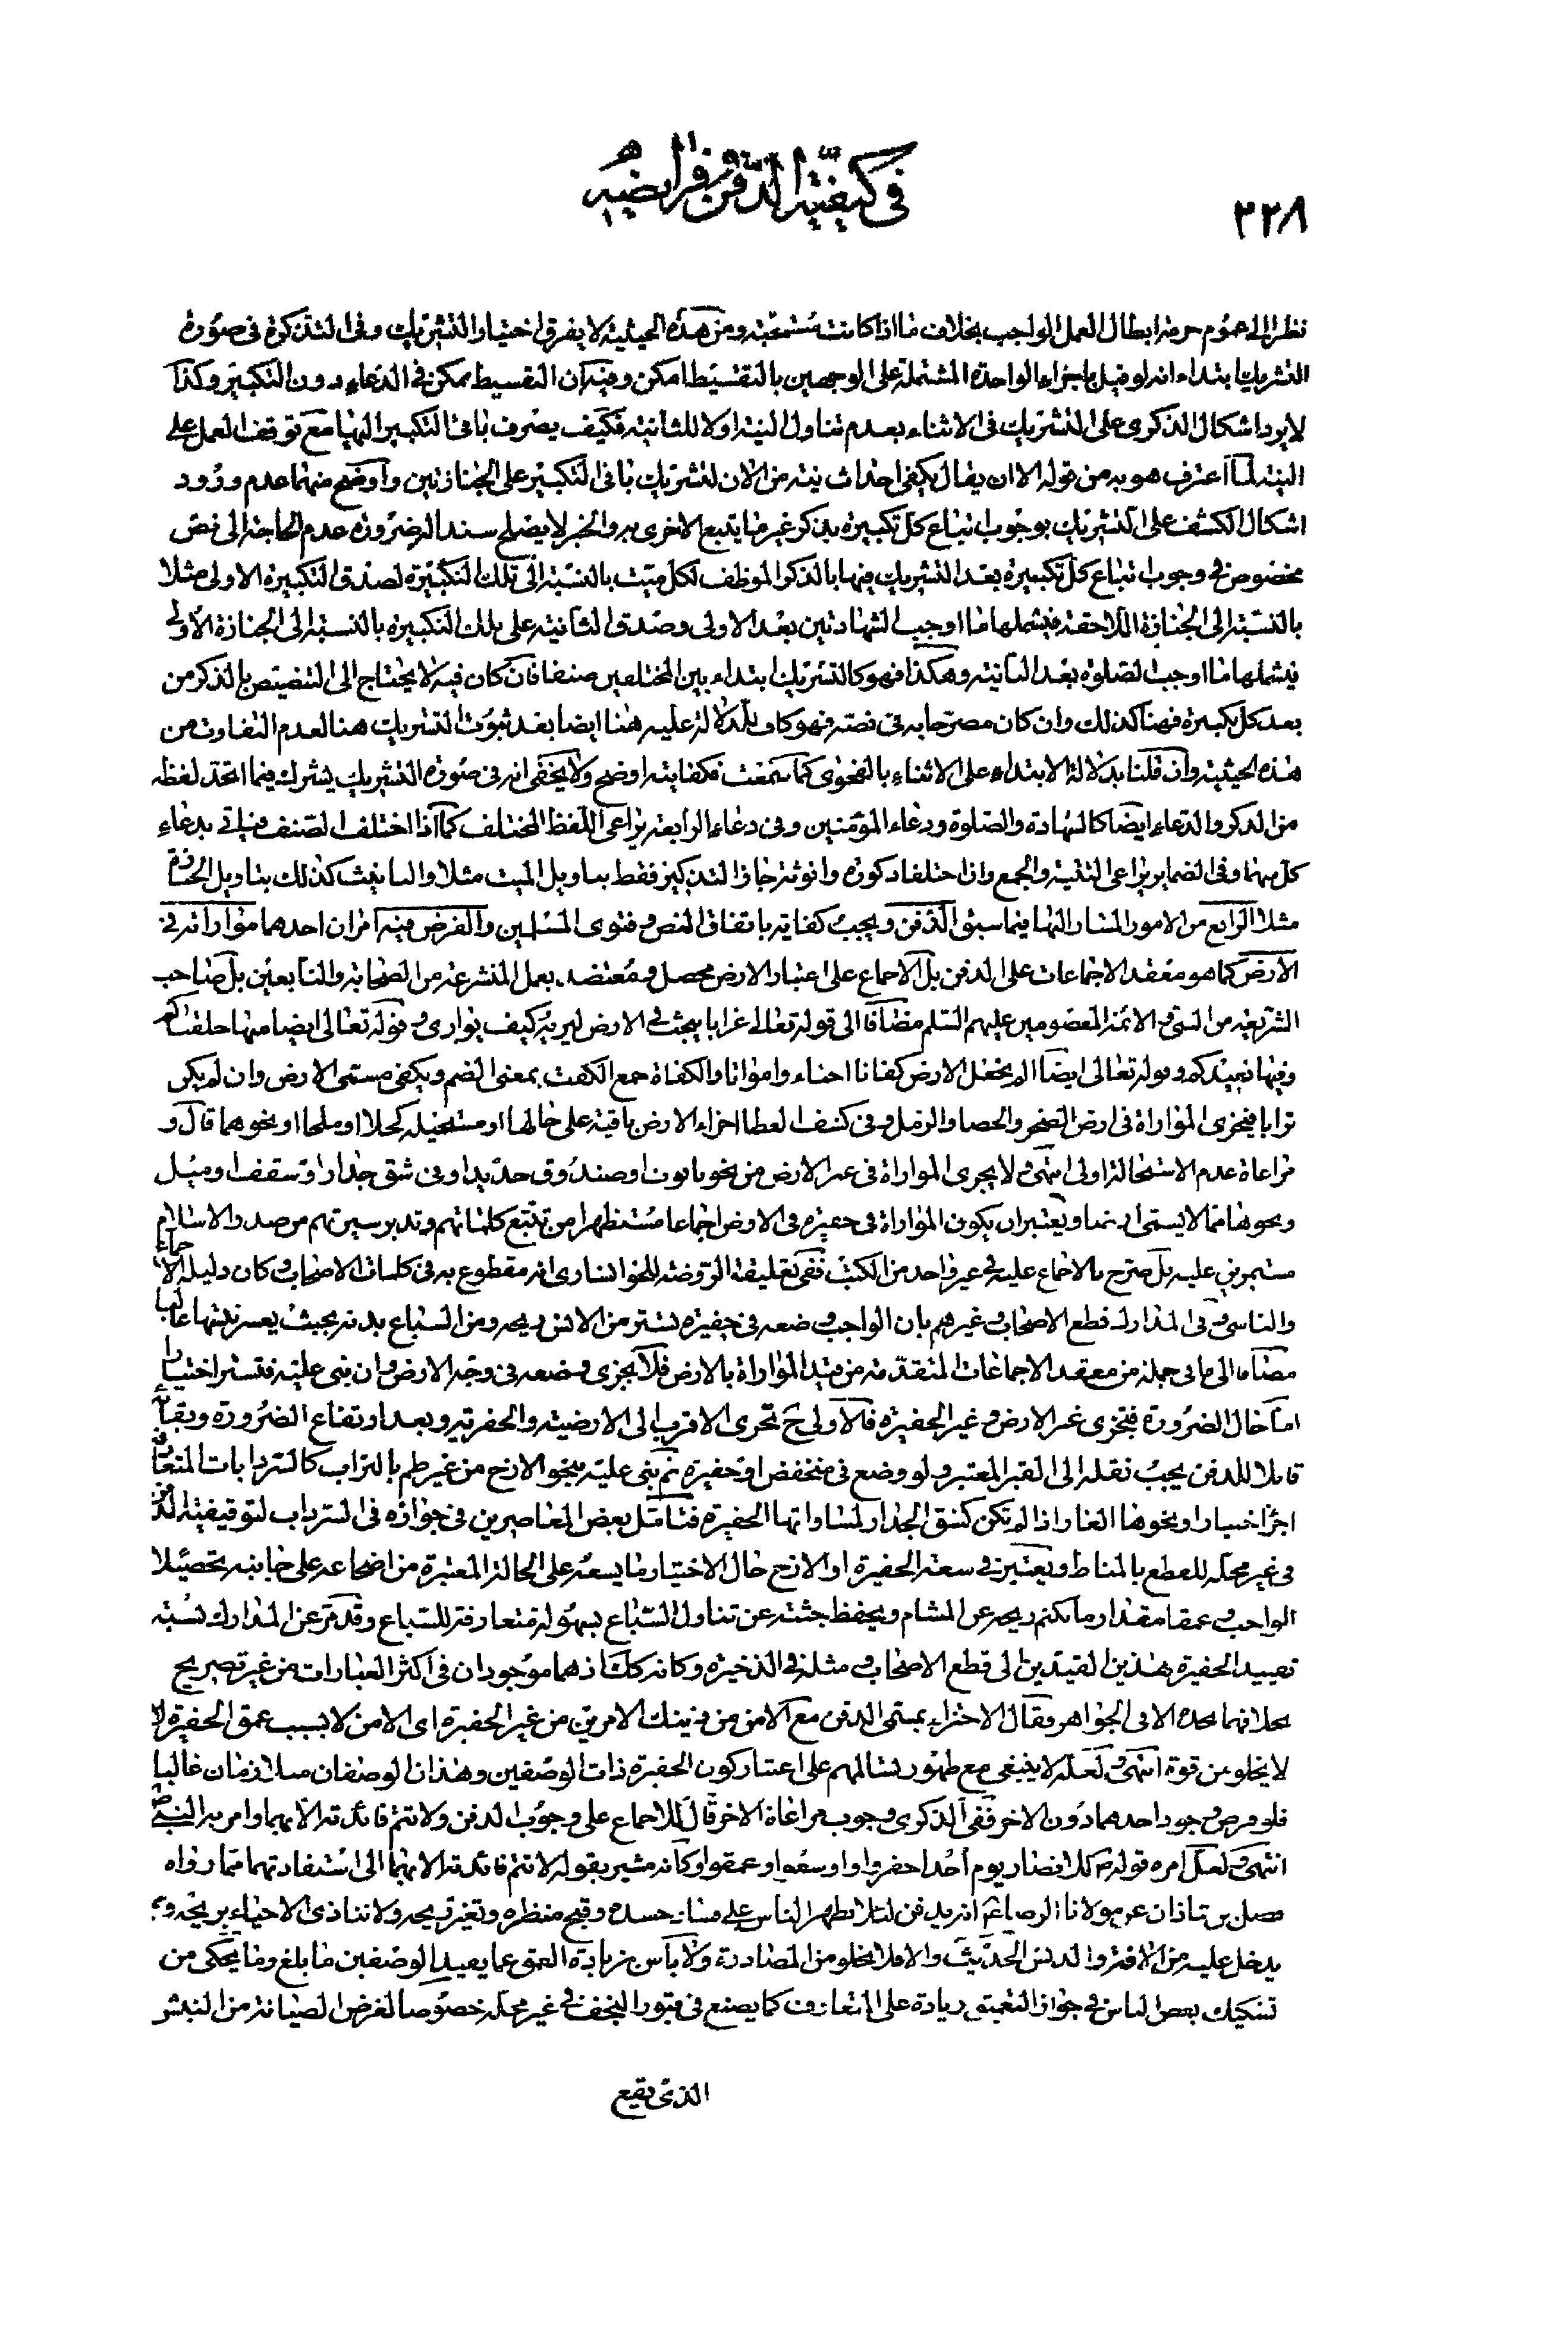 في كيفية الدفن وفرائضه
٣٢٨
نظرا إلى عموم حرمة ابطال العمل الواجب بخلاف ما اذا كانت مستحبة ومن هذه الحيثية لا يفرق اختيار التشريك وفى التذكرة فى صورة
التشريك ابتداء انه لو قيل باجزاء الواحدة المشتملة على الوجهين بالتقسيط امكن وفيه ان التقسيط يمكن في الدعاء دون التكبير وكذا
لا يرد اشكال الذكرى على التشريك فى الاثناء بعدم تناول النية اولا للثانية فكيف يصرف باقى التكبير اليها مع توقف العمل على
النية لما اعترف هو به من قوله الا ان يقال يكفى احداث نية من الان لتشريك باقى التكبير على الجنازتين واوضح منهما عدم ورود
اشكال الكشف على التشريك بوجوب اتباع كل تكبيرة بذكر غير ما يتبع الاخرى به والخبر لا يصلح سندا لضرورة عدم الحاجة الى نص
مخصوص في وجوب اتباع كل تكبيرة بعد التشريك فيها بالذكر الموظف لكل ميت بالنسبة الى تلك التكبيرة لصدق التكبيرة الاولى مثلا
بالنسبة الى الجنازة اللاحقة فيشملها ما اوجب الشهادتين بعد الاولى وصدق الثانية على تلك التكبيرة بالنسبة الى الجنازة الاولى
فيشملها ما اوجب الصلوة بعد الثانية وهكذا فهو كالتشريك ابتداء بين المختلفين صنفا فان كان فيه لا يحتاج الى التنصيص بالذكر من
بعد كل تكبيرة فهنا كذلك وان كان مصرحا به في نصه فهو كاف للدلالة عليه هنا ايضا بعد ثبوت التشريك هنا لعدم التفاوت من
هذه الحيثية وان قلنا بدلالة الابتداء على الاثناء بالفحوى كما سمعت فكفايته اوضح ولا يخفى انه فى صورة التشريك يشرك فيما اتحد لفظه
من الذكر والدعاء ايضا كالشهادة والصلوة ودعاء المؤمنين وفى دعاء الرابعة يراعى اللفظ المختلف كما اذا اختلف الصنف فيأتي بدعاء
كل منهما وفى الضماير يراعى التثنية والجمع واذا اختلفا ذكورة وانوثة جاز التذكير فقط بتاويل الميت مثلا والتانيث كذلك بتاويل الجنازة
مثلا الرابع من الامور المشار اليها فيما سبق الدفن ويجب كفاية باتفاق النص وفتوى المسلمين والفرض فيه امران احدهما مواراته فى
الارض كما هو معقد الاجماعات على الدفن بل الاجماع على اعتبار الارض محصل ومعتضد بعمل المتشرعة من الصحابة والتابعين بل صاحب
الشريعة من النبى والائمة المعصومين عليهم السلم مضافا الى قوله تعالى غرابا يبحث في الارض ليريه كيف يوارى وقوله تعالى ايضا منها خلقناكم
وفيها نعيدكم وقوله تعالى ايضا الم نجعل الارض كفاتا احياء وامواتا والكفاة جمع الكفت بمعنى الضم ويكفى مسمى الارض وان لم يكن
ترابا فيجزى المواراة فى ارض الصخر والحصا والرمل وفى كشف الغطا اجزاء الارض باقية على حالها او مستحيلة كحلا او ملحا او نحوهما قال و
مراعاة عدم الاستحالة اولى انتهى ولا يجزى المواراة فى غير الارض من نحو تابوت او صندوق حديد او فى شق جدار او سقف او ميل
ونحوها مما لا يسمى ارضا ويعتبر ان يكون المواراة فى حفيرة فى الارض اجماعا مستظهرا من تتبع كلماتهم وتدبر سيرتهم من صدر الاسلام
مستمرين عليه بل صرح بالاجماع عليه في غير واحد من الكتب ففى تعليقة الروضة للخوانسارى انه مقطوع به فى كلمات الاصحاب وكان دليله الاجماع
والتاسى وفى المدارك قطع الاصحاب وغيرهم بان الواجب وضعه فى حفيرة تستر من الانس ريحه ومن السباع بدنه بحيث يعسر نبشها غالبا
مضافا الى ما فى جملة من معقد الاجماعات المتقدمة من قيد المواراة بالارض فلا يجزى وضعه فى وجه الارض وان بنى عليه فتستر اختيارا
اما حال الضرورة فتجزى غير الارض وغير الحفيرة فالاولى ح تحرى الاقرب الى الارضية والحفرتية وبعد ارتفاع الضرورة وبقائه
قابلا للدفن يجب نقله الى القبر المعتبر ولو وضع فى منخفض او حفيرة ثم بنى عليه بنحو الازج من غير طم بالتراب كالسردابات المتعارفة
اجزأ اختيارا ونحوها الغار اذا لم تكن كشق الجدار لمساواتها الحفيرة فتامل بعض المعاصرين فى جوازه فى السرداب لتوقيفية الدفن
فى غير محله للقطع بالمناط ويعتبر في سعة الحفيرة او الازج حال الاختيار ما يسعه على الحالة المعتبرة من اضجاعه على جانبه تحصيلا
الواجب وعمقا مقدار ما تكتم ريحه عن المشام ويحفظ جثته عن تناول السباع بسهولة متعارفة للسباع وقد مر عن المدارك نسبته
تقييد الحفيرة بهذين القيدين الى قطع الاصحاب ومثله في الذخيرة وكانه كك اذ هما موجودان فى اكثر العبارات من غير تصريح
بخلافهما بحده الا فى الجواهر فقال الاجتزاء بمسمى الدفن مع الامن من ذينك الامرين من غير الحفيرة اى الامن لا بسبب عمق الحفيرة
لا يخلو من قوة انتهى ولعله لا ينبغى مع ظهور تسالمهم على اعتبار كون الحفيرة ذات الوصفين وهذان الوصفان متلازمان غالبا
فلو فرض وجود احدهما دون الاخر ففى الذكرى وجوب مراعاة الاخر قال للاجماع على وجوب الدفن ولا تتم فائدته الا بهما وامر به النبى ص
انتهى ولعل امره قوله ص للانصار يوم احد احفروا واوسعوا وعمقوا وكانه مشير بقوله لا تتم فائدته الا بهما الى استفادتهما مما رواه
فضل بن شاذان عن مولانا الرضا ع انه يدفن لئلا يظهر الناس على فساد جسده وقبح منظره وتغير ريحه ولا تتاذى الاحياء بريحه و
يدخل عليه من الافة والدنس الحديث والا فلا يخلو من المصادرة ولا باس بزيادة العمق عما يفيد الوصفين ما بلغ وما يحكى من
تشكيك بعض الناس في جواز التعميق زيادة على المتعارف كما يصنع فى قبور النجف في غير محله خصوصا لغرض الصيانة من النبش
الذى يقع